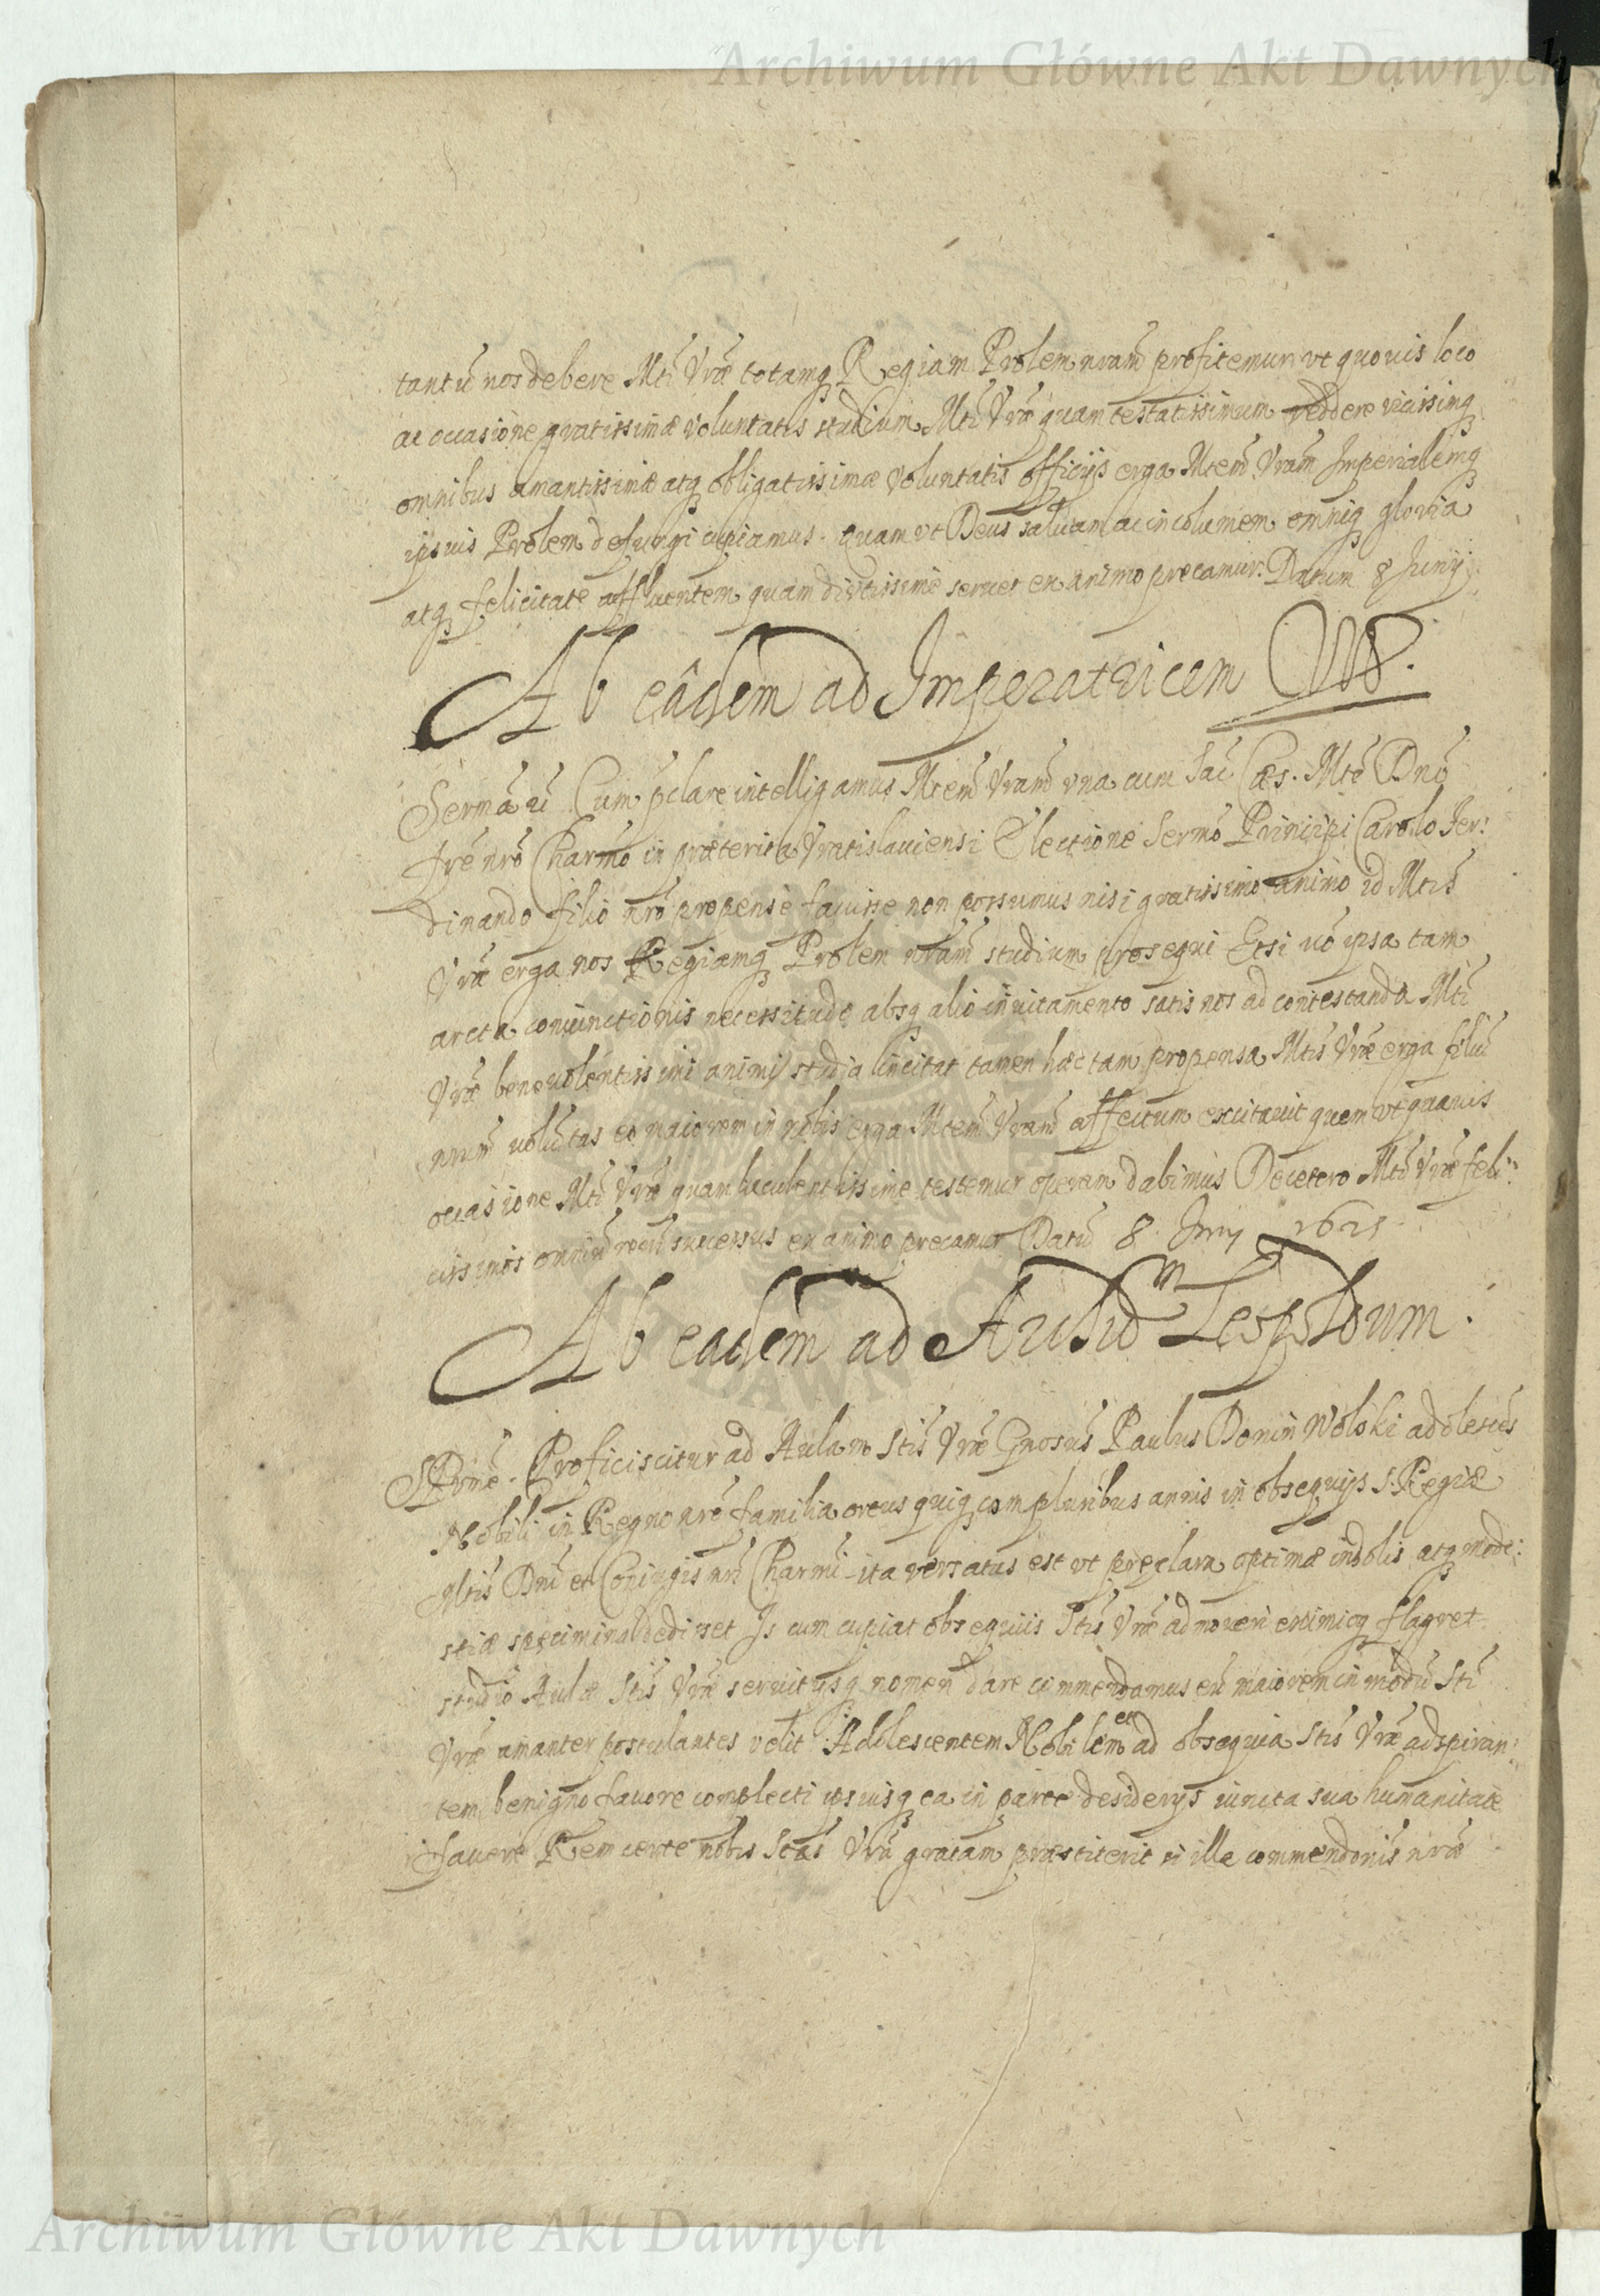 Archiwum Główne Akt Dawnych
tantū nos debere Mtī Vrǣ totamq Regiam Prolem nrām profitemur vt quouis loco
ac occasione gratissimæ voluntatis studium Mtī Vrǣ quam testatissimum reddere vicissimq
omnibus amantissimæ atq obligatissimæ voluntatis officijs erga Mtem̄ Vram̄ Imperialemq
ipsius Prolem defungi cupiamus. quam vt Deus saluam ac incolumem omniq gloria
atq felicitate affluentem quam diutissime seruet ex animo precamur. Datum 8 Junij
Ab eâdem ad Imperatricem
Sermā Cum pclare intelligamus Mtem̄ Vram̄ vna cum Sac Cæs. Mtē Dnō
Frē nrō Charmō in præterita Vratislauiensi Electione Sermō Principi Carolo Fer:
dinando filio nrō propensè fauisse non possumus nisi gratissimo animo id Mtis
Vrǣ erga nos Regiamq Prolem nrām studium prosequi Etsi uō ipsa tam
arcta coniunctionis necessitudo absq alio inuitamento satis nos ad contestanda Mtī
Vrǣ beneuolentissimi animi studia incitat tamen hæc tam propensa Mtis Vrǣ erga filiū
nrum̄ uolūtas eo maiorem in nobis erga Mtem̄ Vram̄ affectum excitauit quem vt quauis
occasione Mtī Vrǣ quam luculentissime testemur operam dabimus De cetero Mtī Vrǣ feli:
cissimos omniū rerū successus ex animo precamur Datū 8. Junij 1625
Ab eadem ad Archid Leopoldum.
Proficiscitur ad Aulam Stis Vrǣ Gnosus Paulus Donin Wolski adolescēs
Nobili in Regno nrō familia ortus quiq compluribus annis in obsequijs S. Regiæ
Mtis Dnī et Coniugis nrī Charmī ita versatus est vt preclara optimæ indolis atq mode:
stiæ specimina dedisset Is cum cupiat obsequiis Stis Vrǣ admoueri eximieq flagret
studio Aulæ Stis Vrǣ seruitijsq nomen dare commendamus eū maiorem in modū Stī
Vrǣ amanter postulantes velit Adolescentem Nobilem et ad obsequia Stis Vrǣ adspiran:
tem benigno fauore complecti ipsiusq ea in parte desiderijs iuncta sua humanitate
fauere Rem certe nobis Stas Vrā gratam præstiterit si ille commendonis nrǣ
Archiwum Główne Akt Dawnych